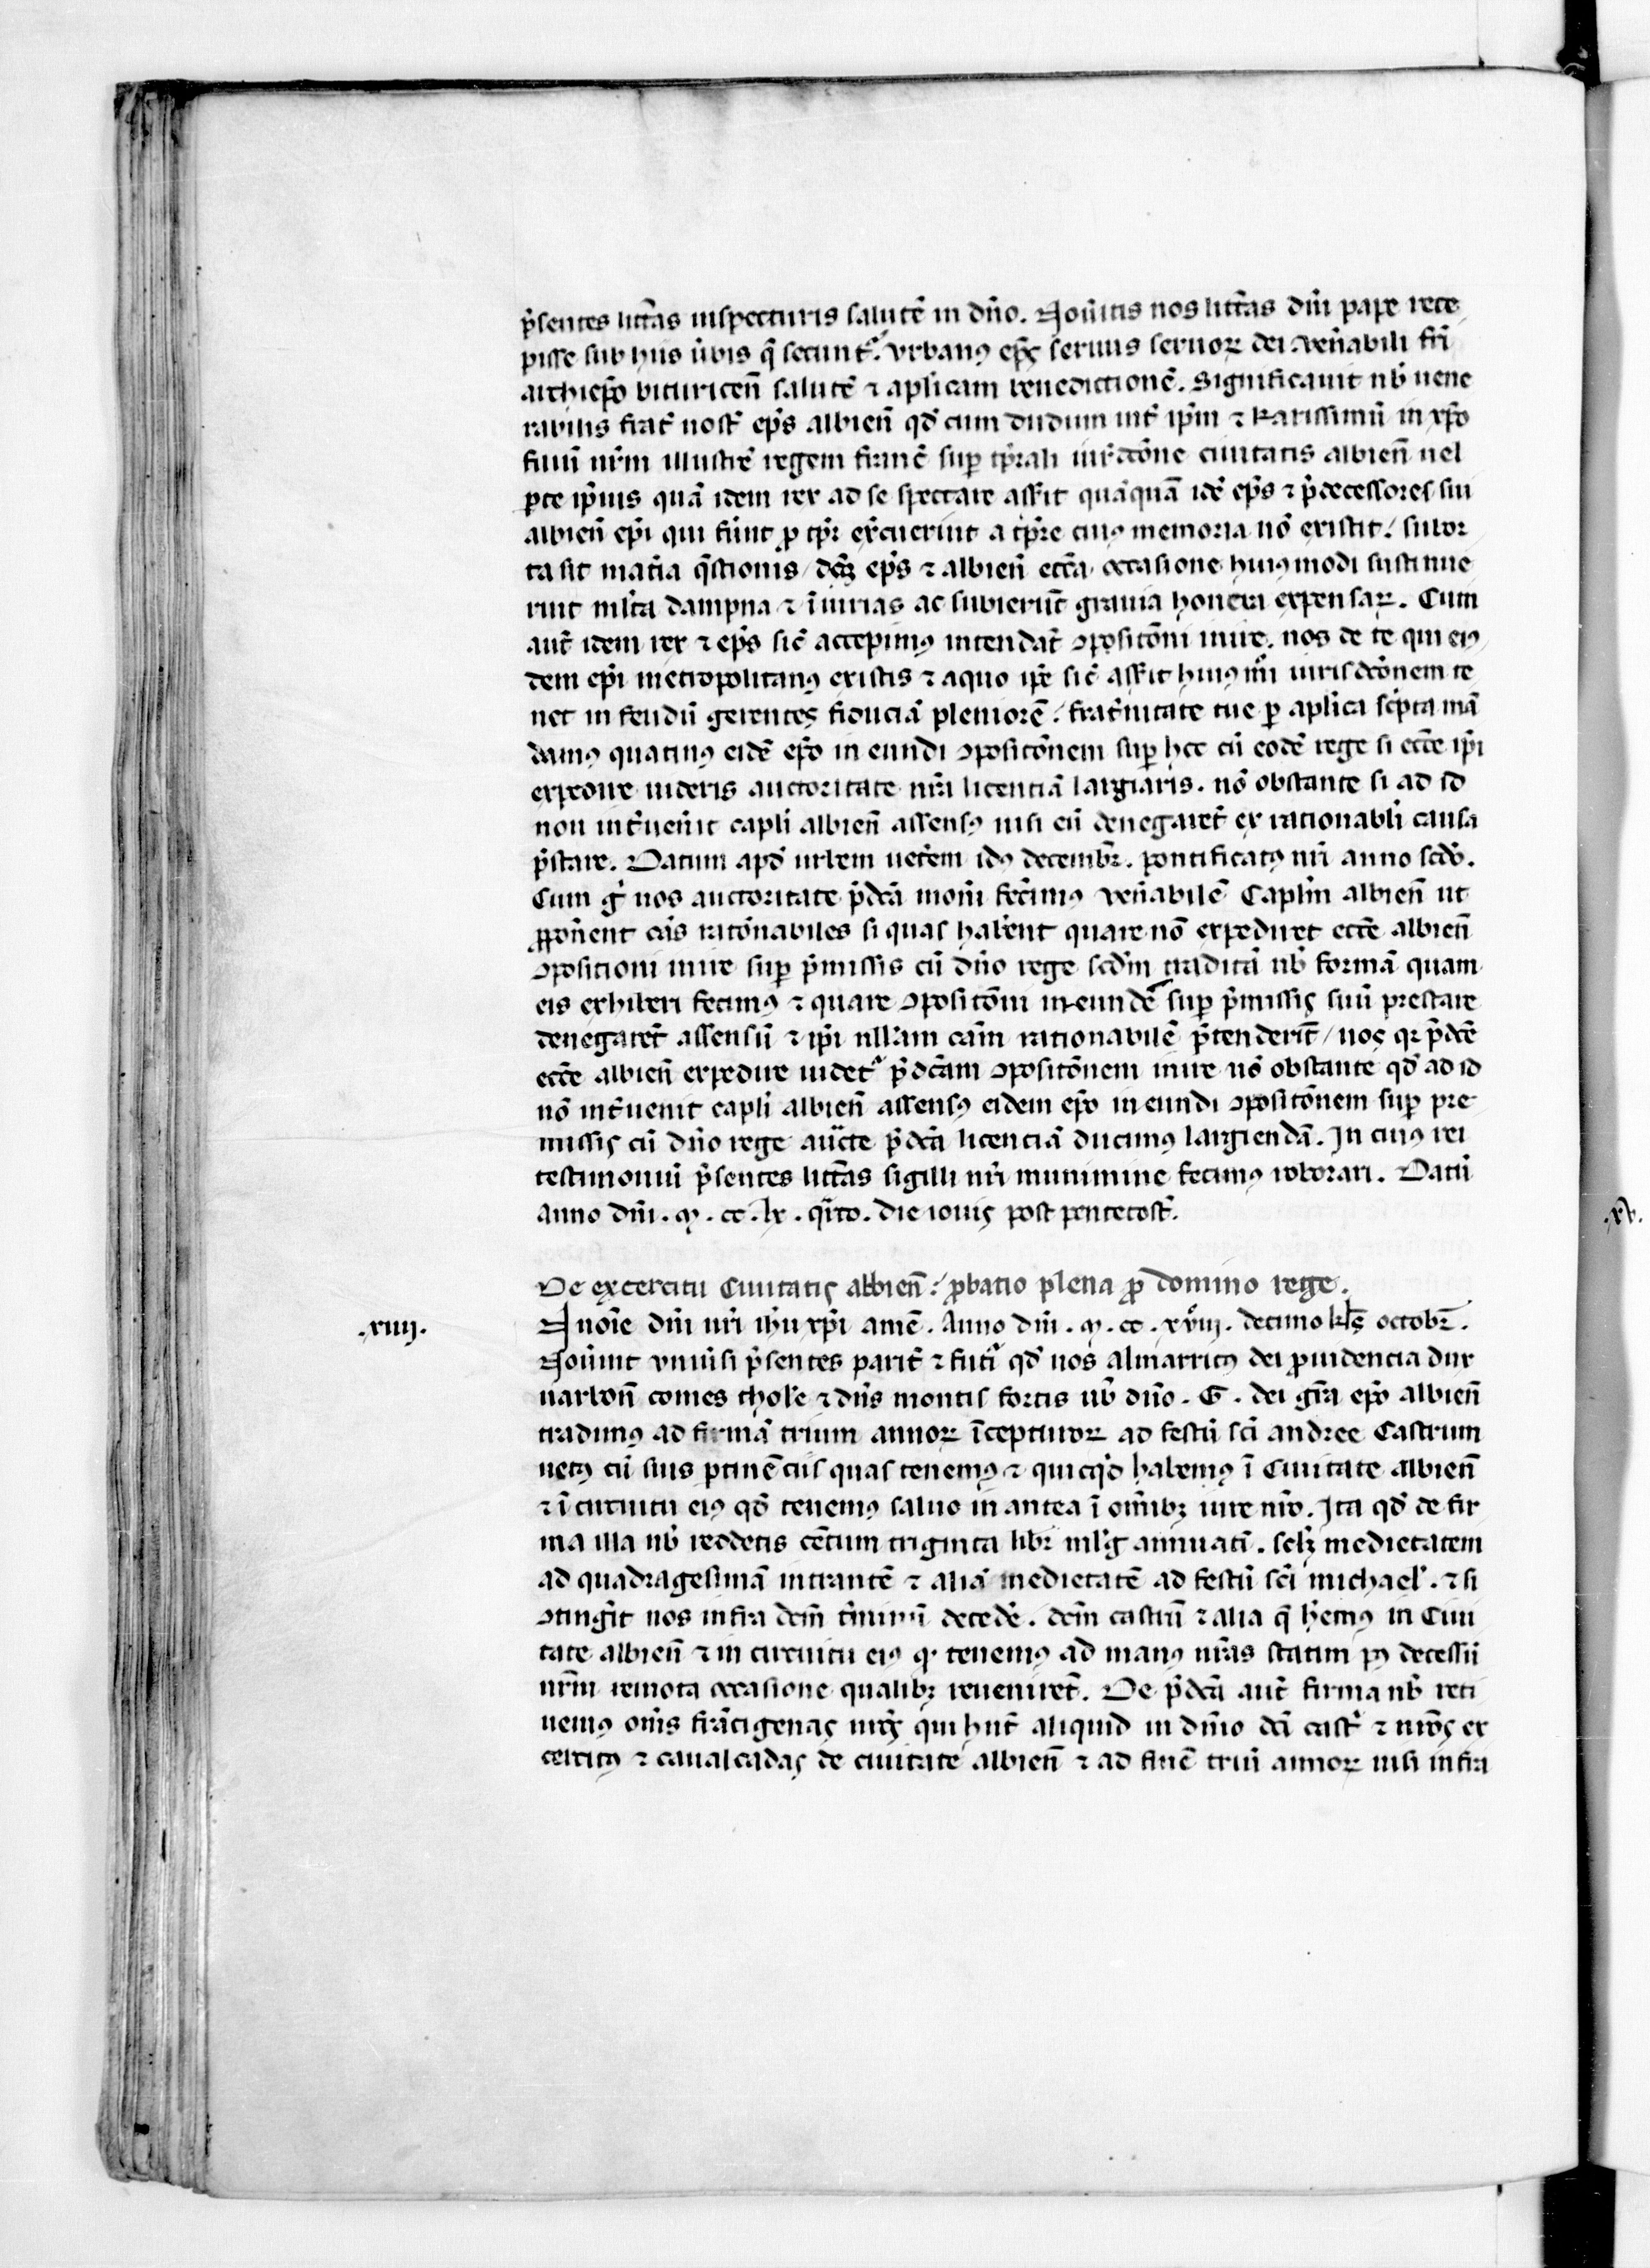 p̄sentes litt̄as inspecturis salutē in dn̄o. Nou̅itis nos litt̄as dn̄i pape rece
pisse sub hiis u̅bis q̄ secunt᷑. Vrbanꝰ ep̄s seruus seruoꝝ dei ven̄abili fr̄i
archiep̄o bituricen̄ salutē ⁊ ap̄licam benedictionē. Significauit nb̄ uene
rabilis frat̄ nost̄ ep̄s albien̄ qd̄ cum dudum int̄ ip̄m ⁊ karissimū in xp̄o
filiū nr̄m illustrē regem francē suꝑ tp̄rali iur̄dcōne ciuitatis albien̄ uel
ꝑte ip̄ius quā idem rex ad se spectare assīt quāquā idē ep̄s ⁊ p̄decessores sui
albien̄ ep̄i qui fūnt ꝓ tp̄r ex̄cuerint a tp̄re cuiꝰ memoria nō existit / subor
ta sit mat̄ia q̄stionis / dc̄ꝰ ep̄s ⁊ albien̄ ecc̄a occasione huiꝰmodi sustinue
rint ml̄ta dampna ⁊ īiurias ac subierūt grauia honera expensaꝝ. Cum
aut̄ idem rex ⁊ ep̄s sic̄ accepimꝰ intendāt ꝯpositōni inire. nos de te qui eiꝰ
dem ep̄i metropolitanꝰ existis ⁊ a quo ip̄e sic̄ assīt huiꝰmōi iurisdcōnem te
net in feudū gerentes fiduciā pleniorē / frat̄nitate tue ꝑ ap̄lica sc̄pta mā
damꝰ quatinꝰ eidē ep̄o in eundi ꝯpositōnem suꝑ hec cū eodē rege si ecc̄e ip̄i
expedire uideris auctoritate nr̄a licentiā largiaris. nō obstante si ad id
non int̄uenit capli albien̄ assensꝰ nisi eū denegaret̄ ex rationabli causa
p̄stare. Datum apd̄ urbem uet̄em idꝰ decembr̄. pontificatꝰ nr̄i anno sc̄do.
Cum g̊ nos auctoritate p̄dcā mon̄i fec̄imꝰ ven̄abilē Caplm̄ albien̄ ut
ꝓpon̄ent cās ratōnabiles si quas hab̄ent quare nō expediret ecc̄e albien̄
ꝯpositioni inire suꝑ p̄missis cū dn̄o rege scd̄m traditā nb̄ formā quam
eis exhiberi fecimꝰ ⁊ quare ꝯpositōni in eundē suꝑ p̄missis suū prestare
denegarēt assensū ⁊ ip̄i nllam cām rationabilē p̄tenderīt / nos qꝛ p̄dcē
ecc̄e albien̄ expedire uidet᷑ p̄dcām ꝯpositōnem inire nō obstante qd̄ ad id
nō int̄uenit capli albien̄ assensꝰ eidem ep̄o in eundi ꝯpositōnem suꝑ pre
missis cū dn̄o rege auc̄te p̄dcā licenciā ducimꝰ largiendā. In cuiꝰ rei
testimoniū p̄sentes litt̄as sigilli nr̄i munimine fecimꝰ roborari. Datū
anno dn̄i. M. cc. lx. qr̄to. die iouis post pentecost̄.
De excercitu Ciuitatis albien̄: ꝓbatio plena ꝓ domino rege.
.xiiij. In noīe dn̄i nr̄i ihu xp̄i amē. Anno dn̄i. M. cc. xviij. decimo kl̄s octobr̄.
Nou̅int vniu̅si p̄sentes parit̄ ⁊ futi᷑ qd̄ nos almarricꝰ dei ꝓuidencia dux
narbon̄ comes thole ⁊ dn̄s montis fortis nb̄ dn̄o. G. dei gr̄a ep̄o albien̄
tradimꝰ ad firmā trium annoꝝ īcepturoꝝ ad festū sc̄i andree Castrum
uetꝰ cū suis ꝑtinēciis quas tenemꝰ ⁊ quicqͥd habemꝰ ī Ciuitate albien̄
⁊ ī circuitu eiꝰ qd̄ tenemꝰ saluo in antea ī oīnibꝫ iure nr̄o. Ita qd̄ de fir
ma illa nb̄ reddetis cētum triginta libr̄ ml̄g annuatī. sclꝫ medietatem
ad quadragesimā intrantē ⁊ aliā medietatē ad festū sc̄i michael̄. ⁊ si
ꝯtinḡit nos infra dem̄ t̄minū decedē. dem̄ castrū ⁊ alia q̄ hēmꝰ in Ciui
tate albien̄ ⁊ in circuitu eiꝰ q. tenemꝰ ad manꝰ nr̄as statim pꝰ decessū
nr̄m remota occasione qualibꝫ reuenirēt. De p̄dcā aut̄ firma nb̄ reti
nemꝰ om̄s frācigenas nr̄os qui hn̄t aliquid in dn̄io dc̄i cast̄ ⁊ nr̄os ex
cercitꝰ ⁊ caualcadas de ciuitate albien̄ ⁊ ad finē triū annoꝝ nisi infra
.xv.